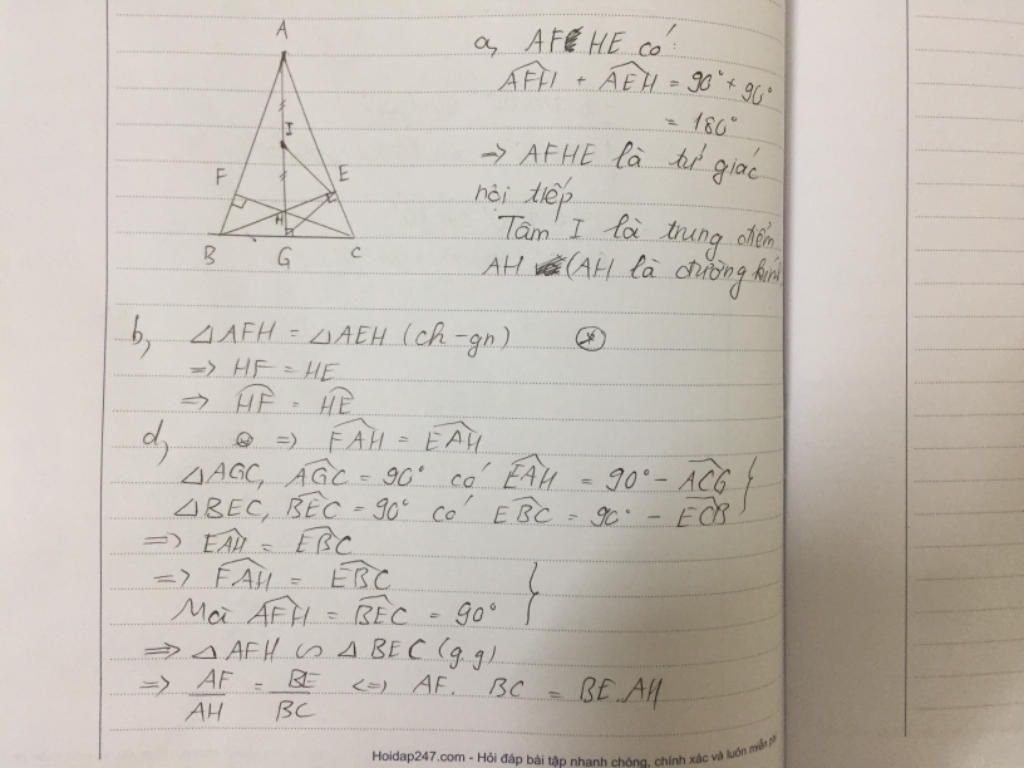 A
I
F
E
H
B
G
C
a, AFHE có:
AFH + AEH = 90° + 90°
= 180°
=> AFHE là tứ giác
nội tiếp
Tâm I là trung điểm
AH (AH là đường kính
b, △AFH = △AEH (ch-gn) (*)
=> HF = HE
=> HF = HE
d, => FAH = EAH
△AGC, AGC = 90° có EAH = 90° - ACG }
△BEC, BEC = 90° có EBC = 90° - ECB
=> EAH = EBC
=> FAH = EBC }
Mà AFH = BEC = 90°
=> △AFH ∽ △BEC (g.g)
=> AF/AH = BE/BC <=> AF. BC = BE.AH
Hoidap247.com - Hỏi đáp bài tập nhanh chóng, chính xác và luôn miễn phí